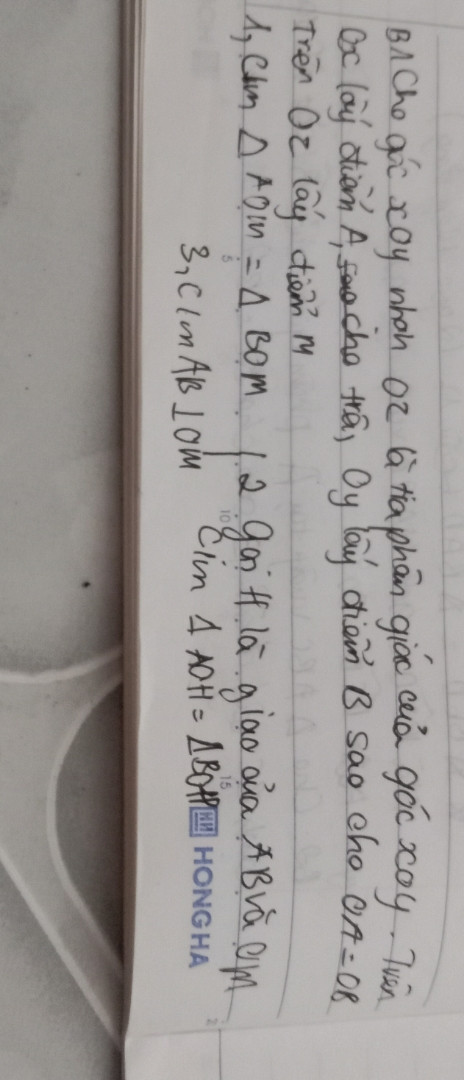 B1 Cho góc xOy nhọn Oz là tia phân giác của góc xOy. Trên
Ox lấy điểm A, sao cho trên Oy lấy điểm B sao cho OA = OB
Trên Oz lấy điểm M
1, C/m Δ AOM = Δ BOM. | 2 gọi H là giao của AB và OM
C/m Δ AOH = ΔBOH
3, C/m AB ⊥ OM
HONG HA